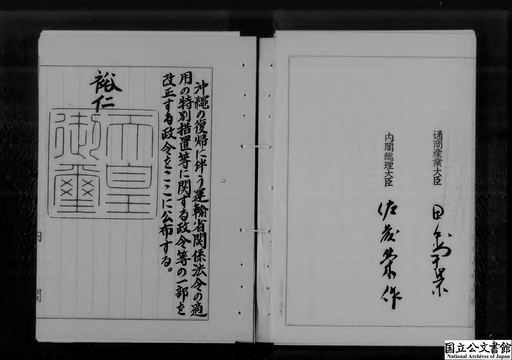 通商産業大臣
田中角栄
内閣総理大臣
佐藤榮作
沖縄の復帰に伴う運輸省関係法令の適
用の特別措置等に関する政令等の一部を
改正する政令をここに公布する。
裕仁
天皇
御璽
内閣
国立公文書館
National Archives of Japan